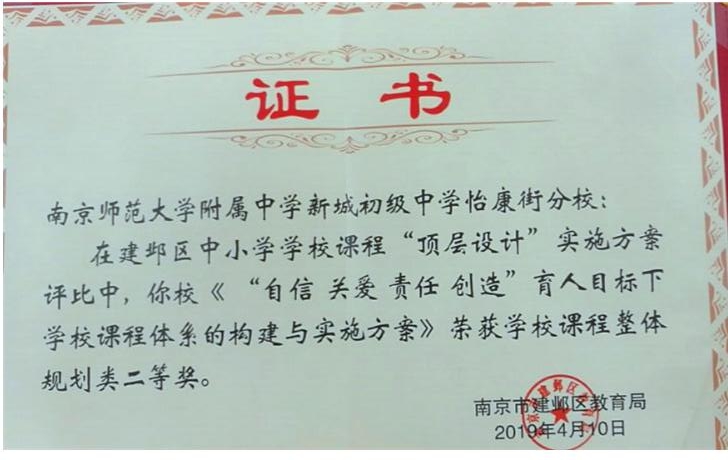 证书
南京师范大学附属中学新城初级中学怡康街分校：
在建邺区中小学学校课程“顶层设计”实施方案
评比中，你校《“自信 关爱 责任 创造”育人目标下
学校课程体系的构建与实施方案》荣获学校课程整体
规划类二等奖。
南京市建邺区教育局
2019年4月10日